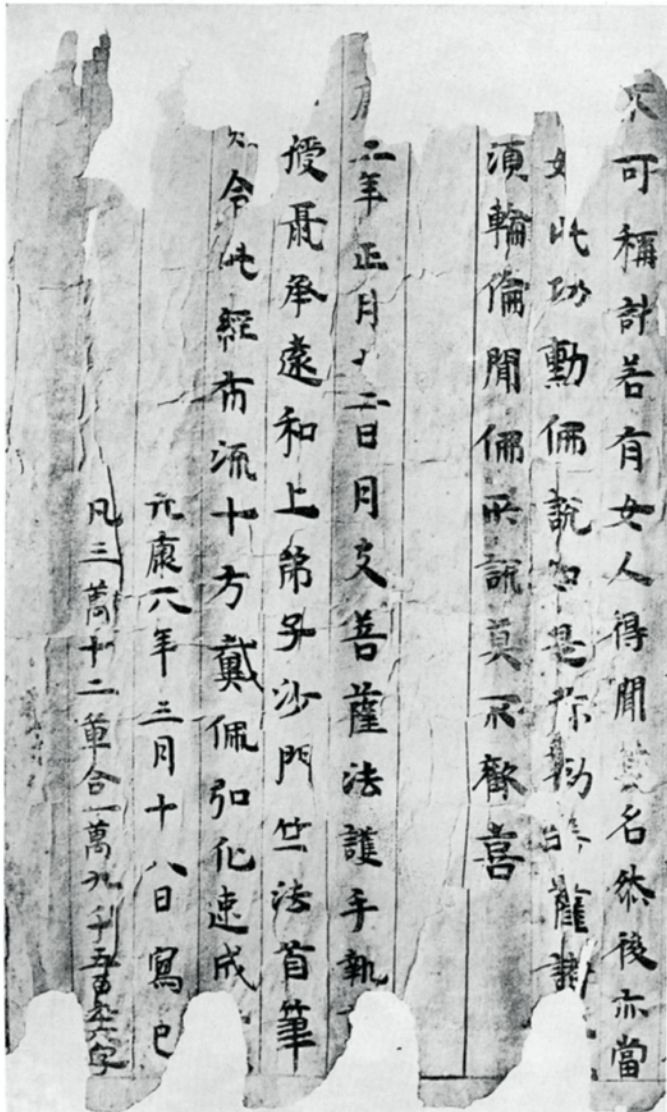 不可稱計若有女人得聞其名然後亦當
如此功勳佛說如是弥勒菩薩諸
須輪倫聞佛所說莫不歡喜
二年正月十二日月支菩薩法護手執
授聶承遠和上弟子沙門竺法首筆
令此經布流十方戴佩弘化速成
元康六年三月十八日寫已
凡三萬十二章合一萬九千五百九十六字